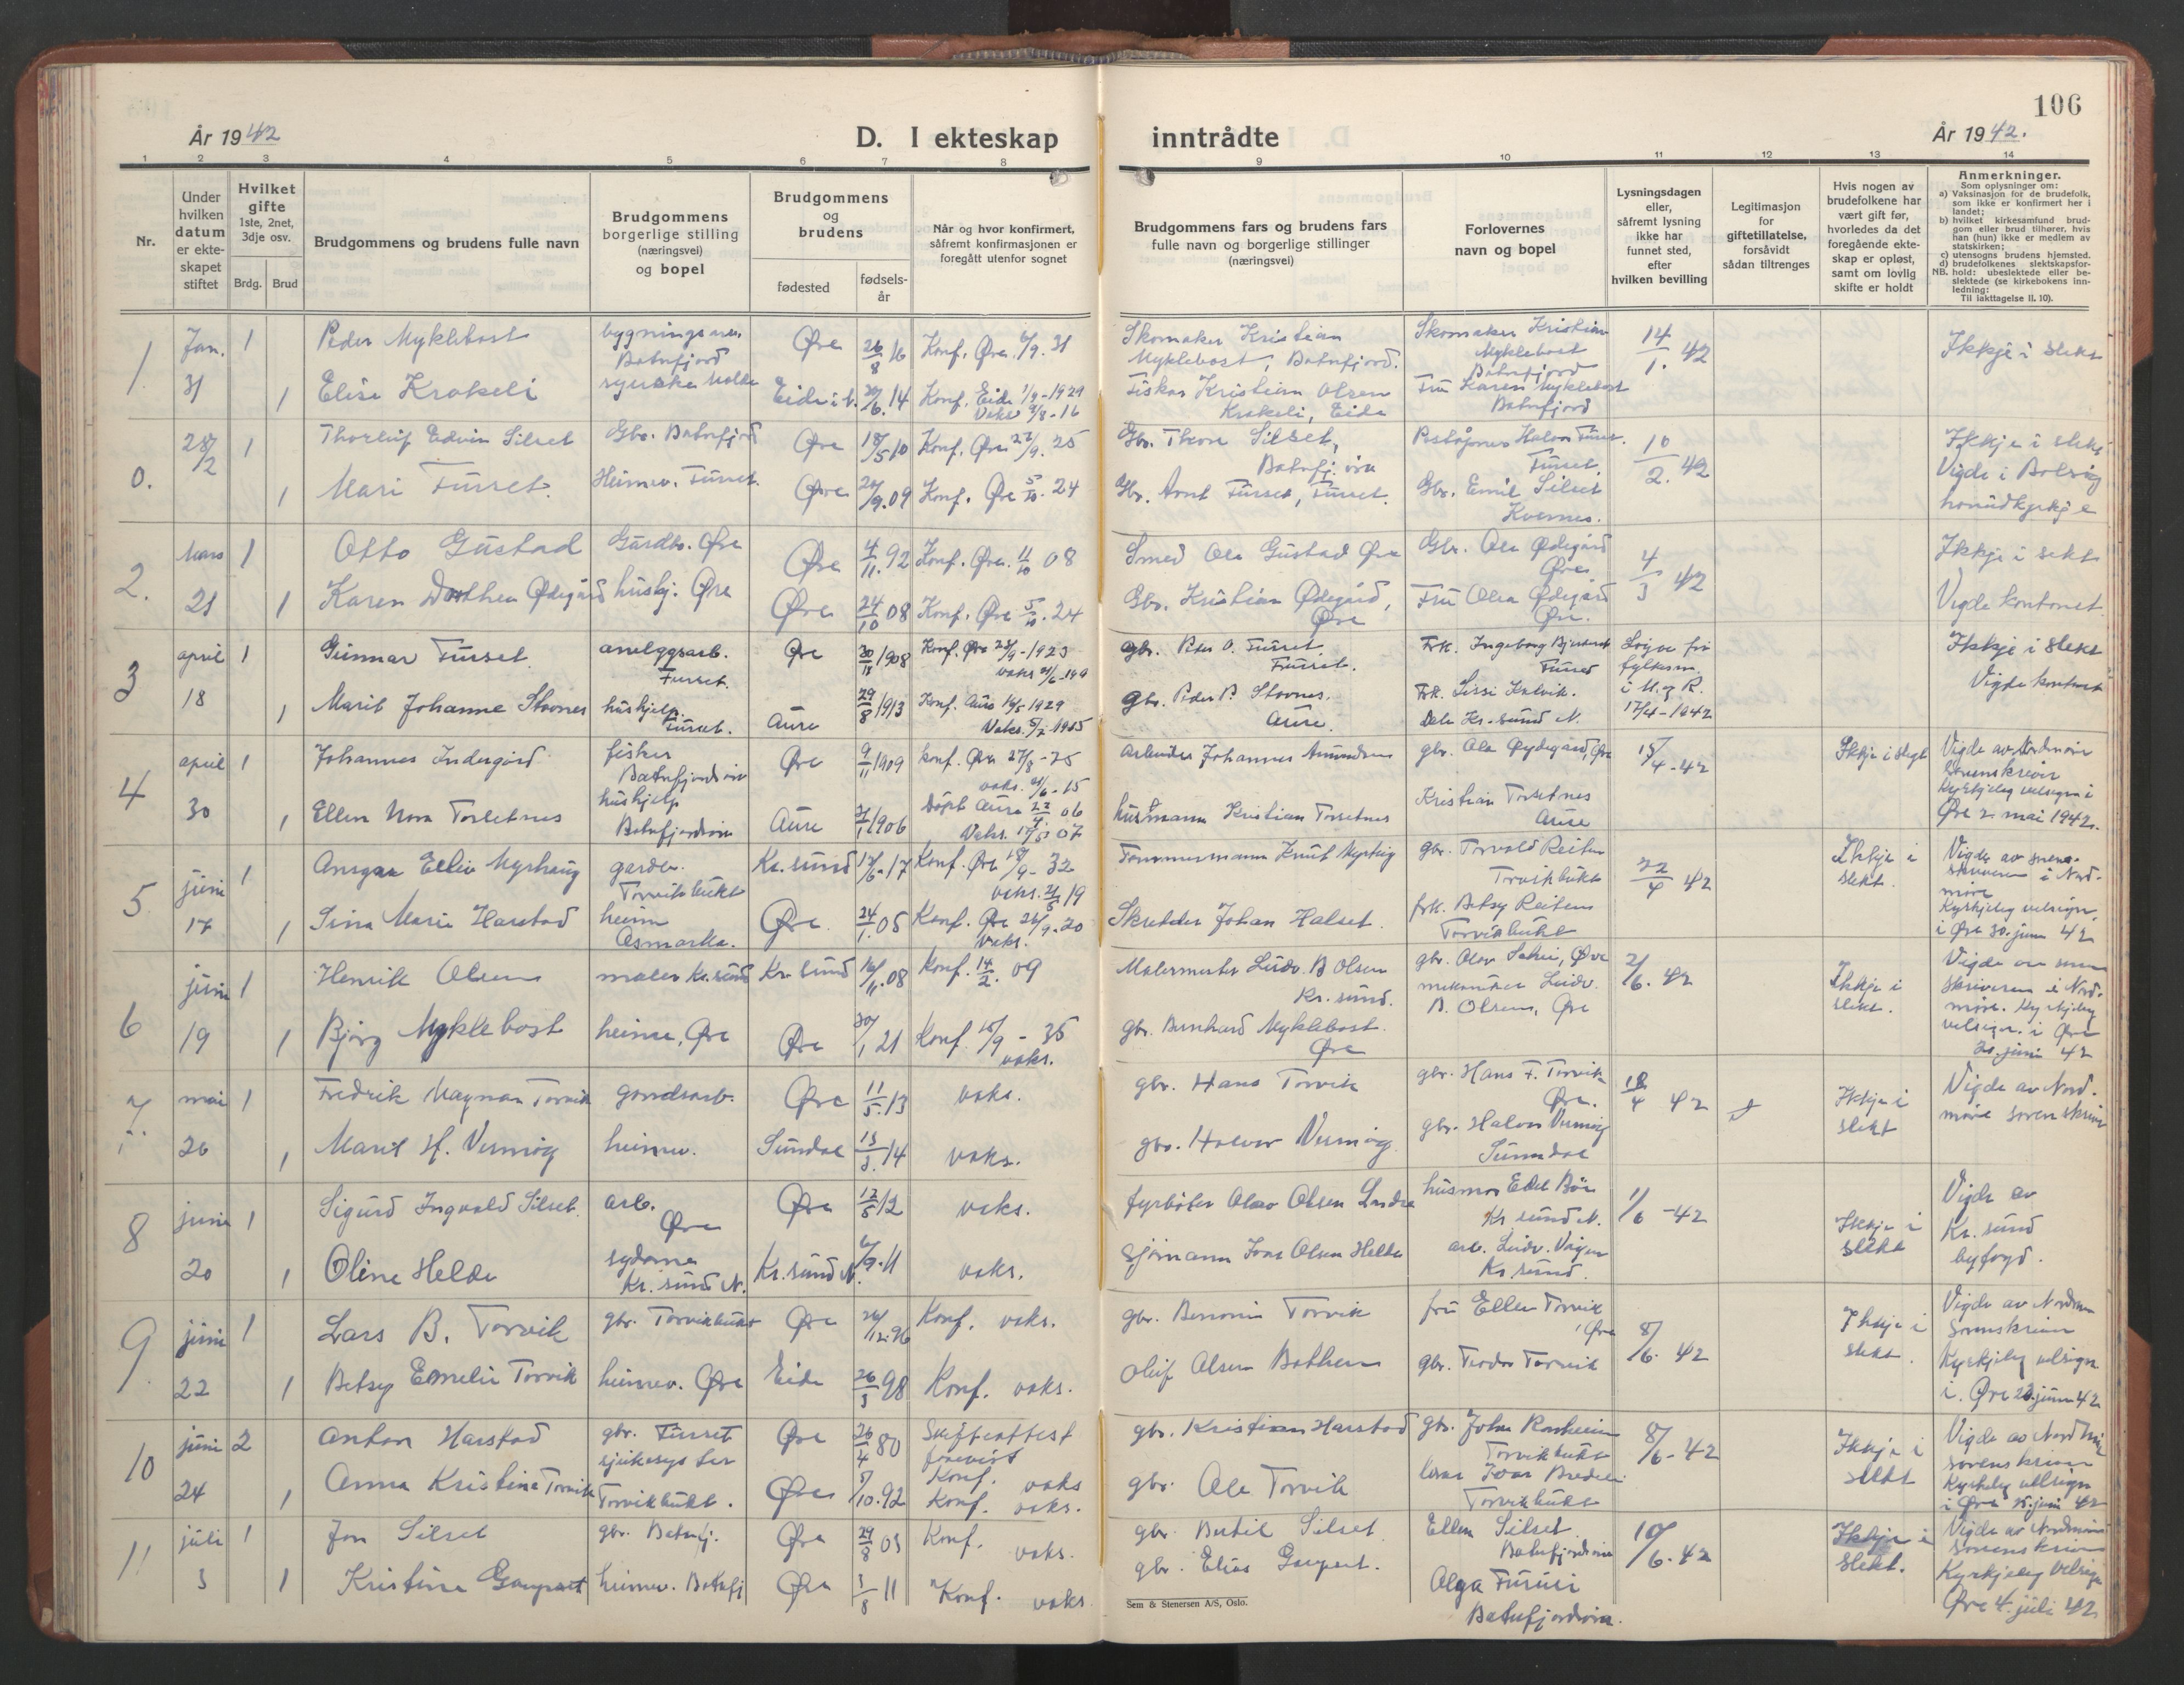 106
År 1942
D. I ekteskap inntrådte
År 1942.
1 2 3 4 5 6 7 8 9 10 11 12 13 14
Nr.
Under hvilken datum er ekte-skapet stiftet
Hvilket gifte 1ste, 2net, 3dje osv.
Brdg. Brud
Brudgommens og brudens fulle navn
Brudgommens borgerlige stilling (næringsvei) og bopel
Brudgommens og brudens
fødested
fødsels-år
Når og hvor konfirmert, såfremt konfirmasjonen er foregått utenfor sognet
Brudgommens fars og brudens fars fulle navn og borgerlige stillinger (næringsvei)
Forlovernes navn og bopel
Lysningsdagen eller, såfremt lysning ikke har funnet sted, efter hvilken bevilling
Legitimasjon for giftetillatelse, forsåvidt sådan tiltrenges
Hvis nogen av brudefolkene har vært gift før, hvorledes da det foregående ekte-skap er opløst, samt om lovlig skifte er holdt
Anmerkninger.
Som oplysninger om:
a) Vaksinasjon for de brudefolk, som ikke er konfirmert her i landet;
b) hvilket kirkesamfund brud-gom eller brud tilhører, hvis han (hun) ikke er medlem av statskirken;
c) utensogns brudens hjemsted.
d) brudefolkenes slektskapsfor-hold: ubeslektede eller be-slektede (se kirkebokens inn-ledning:
NB.
Til iakttagelse II. 10).
1. Jan. 31
1 Peder Myklebost bygningsarb. Batnfjord Øre 26/8 16 Konf. Øre 6/9. 31 Skomaker Kristian Myklebost, Batnfjord. Skomaker Kristian Myklebost Batnfjord 14/1. 42 Ikkje i slekt
1 Elise Krakeli Eide Konf. Eide 1/9-1929 Fiskar Kristian Olsen Krakeli, Eide Fru Karen Myklebost Batnfjord
0. 28/2
1 Thorleif Edvin Silset Gbr. Batnfjord Øre 18/5 10 Konf. Øre 27/9. 25 Gbr. Thore Silset, Halvor Furset. Furset. 10/2. 42 Ikkje i slekt
1 Mari Furset. Heimev. Furset. Øre 9.09 Konf. Øre 5/10. 24 Gbr. Arnt Furset, Furset. Gbr. Emil Silset Kvernes. Vigde i Bolsøy hovudkyrkje
2. Mars 21
1 Otto Gustad Gardbr. Øre Øre 4/11. 92 Konf. Øre. 11/10 08 Smed Ola Gustad Øre Gbr. Ola Ødegård Øre 4/3 42 Ikkje i slekt
1 Karen Dorthea Ødegård hushj. Øre Øre 24/10 08 Konf. Øre 5/10. 24 Gbr. Kristian Ødegård, Øre Fru Olea Ødegård Øre. Vigde kontoret
3 april 18
1 Gunnar Furset. anleggsarb. Furset. Øre 30/11 1908 Konf. Øre 23/9-1923 gbr. Peter O. Furset. Furset. Frk. Ingeborg Furset Løyve frå fylkesm. i M. og R. 17/4-1942 Ikkje i slekt
1 Marit Johanne Stovnes hushjelp. Furset. Aure 29/8 1913 Konf. Aure 1929 Vaks. 1915 gbr. Peder P. Stovnes. Aure. Frk. Sissi Kalvik. Dale Kr.sund N. Vigde kontoret
4 april 30
1 Johannes Indergård fisker Batnfjordsøra Øre 9/11 1909 konf. Øre 27/8-25 vaks. 21/6-15 arbeider Johannes Amundsen gbr. Ola Øydegård, Øre 15/4-42 Ikkje i slegt Vigde av Nordmøre sorenskrivar
1 Ellen Nora Torsetnes hushjelp Batnfjordsøra Aure 1906 Døpt Aure 22/4. 06 Vaks. 07 husmann Kristian Torsetnes Kristian Torsetnes Aure Kyrkjeleg velsigna i Øre 2. mai 1942.
5 juni 17
1 Ansgar Eiliv Myrhaug Torvikbukt Kr.sund 17 Konf. Øre 18/9-32 vaks. 19 Tømmermann Knut gbr. Torvald Reiten Torvikbukt 22/4 42 Ikkje i slekt. Vigde av sorenskrivaren i Nordmøre
1 Marie Harstad heime Øre 24/1. 05 Konf. Øre 26/9-20 Vaks. Skredder Johan Halset. frk. Betsy Reiten Torvikbukt Kyrkjeleg velsigna i Øre 30. juni 42
6 juni 19
1 Henrik Olsen maler Kr.sund Kr.sund 16/11.08 Konf. 14/2. 09 Malermester Ludv. B Olsen Kr.sund. gbr. Olav Øre Ludv. B. Olsen, Øre 2/6. 42 Ikkje i slekt. Vigde av sorenskriveren i Nordmøre. Kyrkjeleg
1 Bjørg Myklebost heime, Øre Øre 30/1 21 Konf. 15/9-35 vaks. gbr. Bernhard Myklebost. Øre velsign. i Øre 20. juni 42
7. mai 26
1 Fredrik Magnar Torvik gardsarb. Øre 11/5.13 vaks. gbr. Hans Torvik gbr. Hans F. Torvik Øre. 18/4 42 Ikkje i slekt Vigde av Nordmøre sorenskriv
1 Marit H. heimev. Sundal 13/3. 14 vaks. gbr. Halvor gbr. Halvor Sunndal
8 juni 20
1 Sigurd Ingvald Silset. arb. Øre Øre 12/5 12 vaks. fyrbøter Olav Olsen husmor Edel Bøe Kr.sund N. 1/6-42 Ikkje i slekt Vigde av Kr.sund byfogd.
1 Oline Helde sydame Kr.sund N. Kr.sund N. 6/9.11 vaks. Sjømann Ivar Olsen Helde arb. Ludv. Kr.sund.
9. juni 22
1 Lars B. Torvik gbr. Torvikbukt Øre 12.96 Konf. vaks. gbr. Benonni Torvik fru Ellen Torvik, Øre 8/6. 42 Ikkje i slekt. Vigde av Nordmøre Sorenskriver
1 Betsy Emelie Torvik heimev. Øre Eide 26/3 98 Konf. vaks. Oluf Olsen Bothem gbr. Teodor Torvik Kyrkjeleg velsign i. Øre 23. juni 42
10 juni 24
2 Anton Harstad gbr. Furset Øre 26/4 80 Skifteattest framvist Konf. vaks gbr. Kristian Harstad gbr. Johan Torvikbukt 8/6-42 Ikkje i slekt Vigde av Nordmøre sorenskriver
1 Anna Kristine Torvik sjukesyster Torvikbukt. Øre 10.92 Konf. vaks. gbr. Ole Torvik Ivar Torvikbukt Kyrkjeleg velsign i Øre 25. juni 42
11 juli 3
1 Jon Silset gbr. Batnfj. Øre 29/8 03 Konf. vaks. gbr. Bertil Silset. Ellen Silset Batnfjordsøra 10/6. 42 Ikkje i slekt. Vigde av Nordmøre sorenskriver
1 Kristine Gaupset heimev. Batnfj Øre 3/8 11 Konf. vaks. gbr. Elias Gaupset. Olga Furset Batnfjordsøra. Kyrkjeleg velsign Øre 4. juli 42
Sem & Stenersen A/S, Oslo.